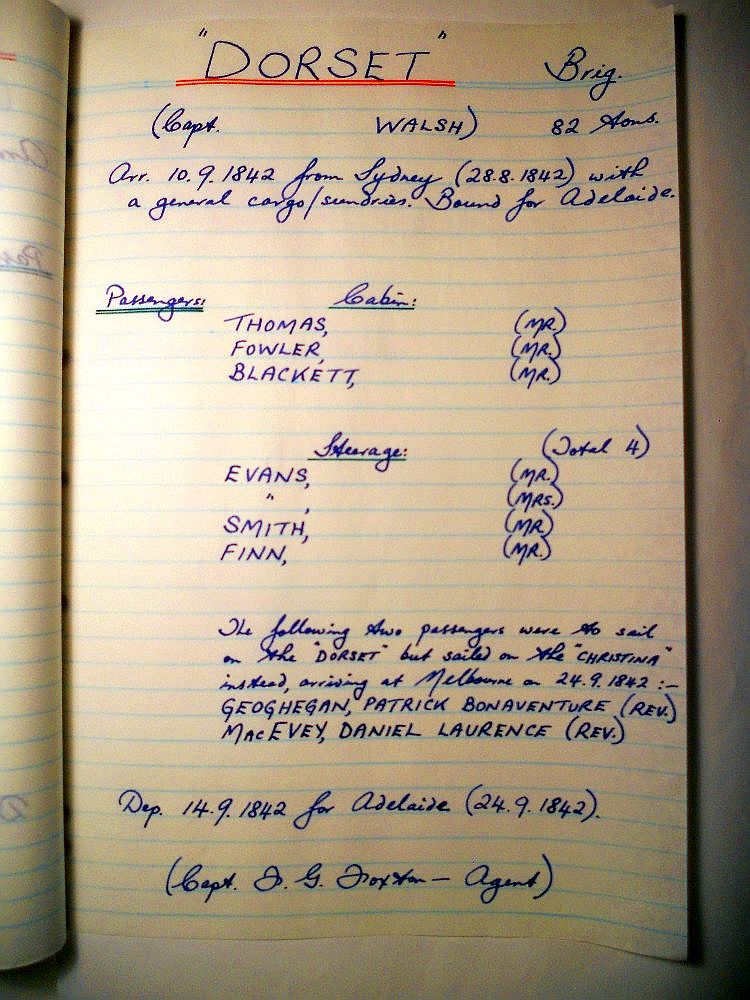 "DORSET" Brig.
(Capt. WALSH) 82 Tons.
Arr. 10.9.1842 from Sydney (28.8.1842) with
a general cargo/sundries. Bound for Adelaide.
Passengers: Cabin:
THOMAS, (MR.)
FOWLER, (MR.)
BLACKETT, (MR.)
Steerage: (Total 4)
EVANS, (MR.)
" , (MRS.)
SMITH, (MR.)
FINN, (MR.)
The following two passengers were to sail
on the "DORSET" but sailed on the "CHRISTINA"
instead, arriving at Melbourne on 24.9.1842 :-
GEOGHEGAN, PATRICK BONAVENTURE (REV.)
MacEVEY, DANIEL LAURENCE (REV.)
Dep. 14.9.1842 for Adelaide (24.9.1842).
(Capt. F. G. Foxton - Agent)